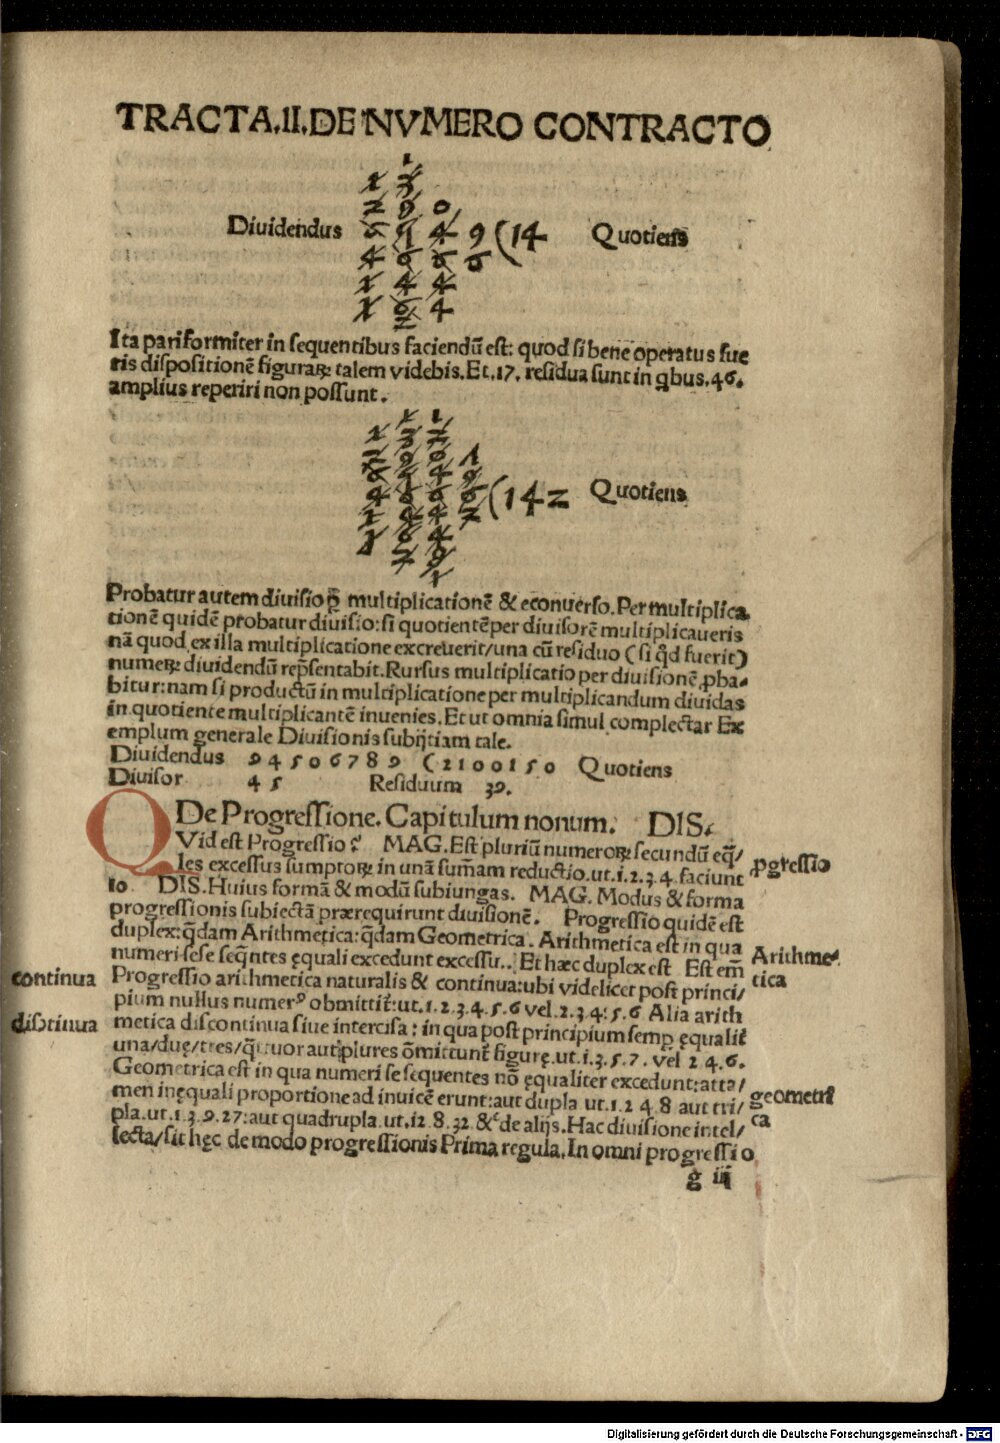 TRACTA.II.DE NVMERO CONTRACTO
Diuidendus
9 (14 Quotiens
Ita pariformiter in sequentibus faciendū est: quod si bene operatus fue
ris dispositionē figuraꝝ talem videbis. Et.17. residua sunt in qbus.46.
amplius reperiri non possunt.
(142 Quotiens
Probatur autem diuisio ꝑ multiplicationē & econuerso. Per multiplica
tionē quidē probatur diuisio: si quotientē per diuisorē multiplicaueris
nā quod ex illa multiplicatione excreuerit/una cū residuo (si qd fuerit)
numeꝝ diuidendū rep̄sentabit. Rursus multiplicatio per diuisionē ꝓba-
bitur: nam si productū in multiplicatione per multiplicandum diuidas
in quotiente multiplicantē inuenies. Et ut omnia simul complectar Ex
emplum generale Diuisionis subijtiam tale.
Diuidendus 9 4 5 0 6 7 8 9 (2 1 0 0 1 5 0 Quotiens
Diuisor 4 5 Residuum 39.
De Progressione. Capitulum nonum. DIS.
QVid est Progressio? MAG. Est pluriū numeroꝝ secundū eq̄/
les excessus sumptoꝝ in unā sum̄am reductio.ut.1.2.3.4. faciunt
ꝓgressio
10 DIS. Huius formā & modū subiungas. MAG. Modus & forma
progressionis subiectā prærequirunt diuisionē. Progressio quidē est
duplex: q̄dam Arithmetica: q̄dam Geometrica. Arithmetica est in qua
numeri sese seq̄ntes ęquali excedunt excessu.. Et hæc duplex est Est em̄
Arithme/
tica
continua
Progressio arithmetica naturalis & continua: ubi videlicet post princi/
pium nullus numerꝰ obmittit̄: ut.1.2.3.4.5.6 vel.2.3.4.5.6 Alia arith
distinua
metica discontinua siue intercisa: in qua post principium semꝑ ęqualit̄
una/duę/tres/q̄tuor aut plures ōmittunt̄ figurę.ut.1.3.5.7. vel 2 4.6.
Geometrica est in qua numeri se sequentes nō ęqualiter excedunt: atta/
men in ęquali proportione ad inuicē erunt: aut dupla ut.1.2 4 8 aut tri/
geometri
ca
pla.ut.1.3.9.27: aut quadrupla.ut.i2 8.32 &c̄ de alijs. Hac diuisione intel/
lecta/sit hęc de modo progressionis Prima regula. In omni progressio
g iij
Digitalisierung gefördert durch die Deutsche Forschungsgemeinschaft - DFG